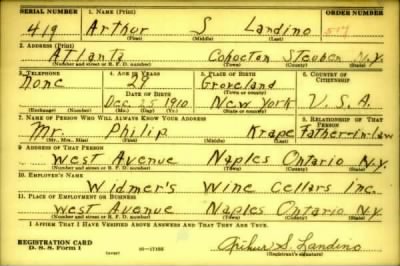 SERIAL NUMBER 1. NAME (Print) ORDER NUMBER
419 Arthur S Landino
(First) (Middle) (Last)
2. ADDRESS (Print)
Atlanta Cohocton Steuben N.Y.
(Number and street or R. F. D. number) (Town) (County) (State)
3. TELEPHONE 4. AGE IN YEARS 5. PLACE OF BIRTH 6. COUNTRY OF CITIZENSHIP
None 29 Groveland
DATE OF BIRTH (Town or county)
Dec 25 1910 New York U.S.A.
(Exchange) (Number) (Mo.) (Day) (Yr.) (State or country)
7. NAME OF PERSON WHO WILL ALWAYS KNOW YOUR ADDRESS 8. RELATIONSHIP OF THAT PERSON
Mr. Philip Krape Father-in-law
(Mr., Mrs., Miss) (First) (Middle) (Last)
9. ADDRESS OF THAT PERSON
West Avenue Naples Ontario N.Y.
(Number and street or R. F. D. number) (Town) (County) (State)
10. EMPLOYER'S NAME
Widmer's Wine Cellars Inc.
11. PLACE OF EMPLOYMENT OR BUSINESS
West Avenue Naples Ontario N.Y.
(Number and street or R. F. D. number) (Town) (County) (State)
I AFFIRM THAT I HAVE VERIFIED ABOVE ANSWERS AND THAT THEY ARE TRUE.
REGISTRATION CARD
D. S. S. Form 1 Arthur S. Landino
(Registrant's signature)